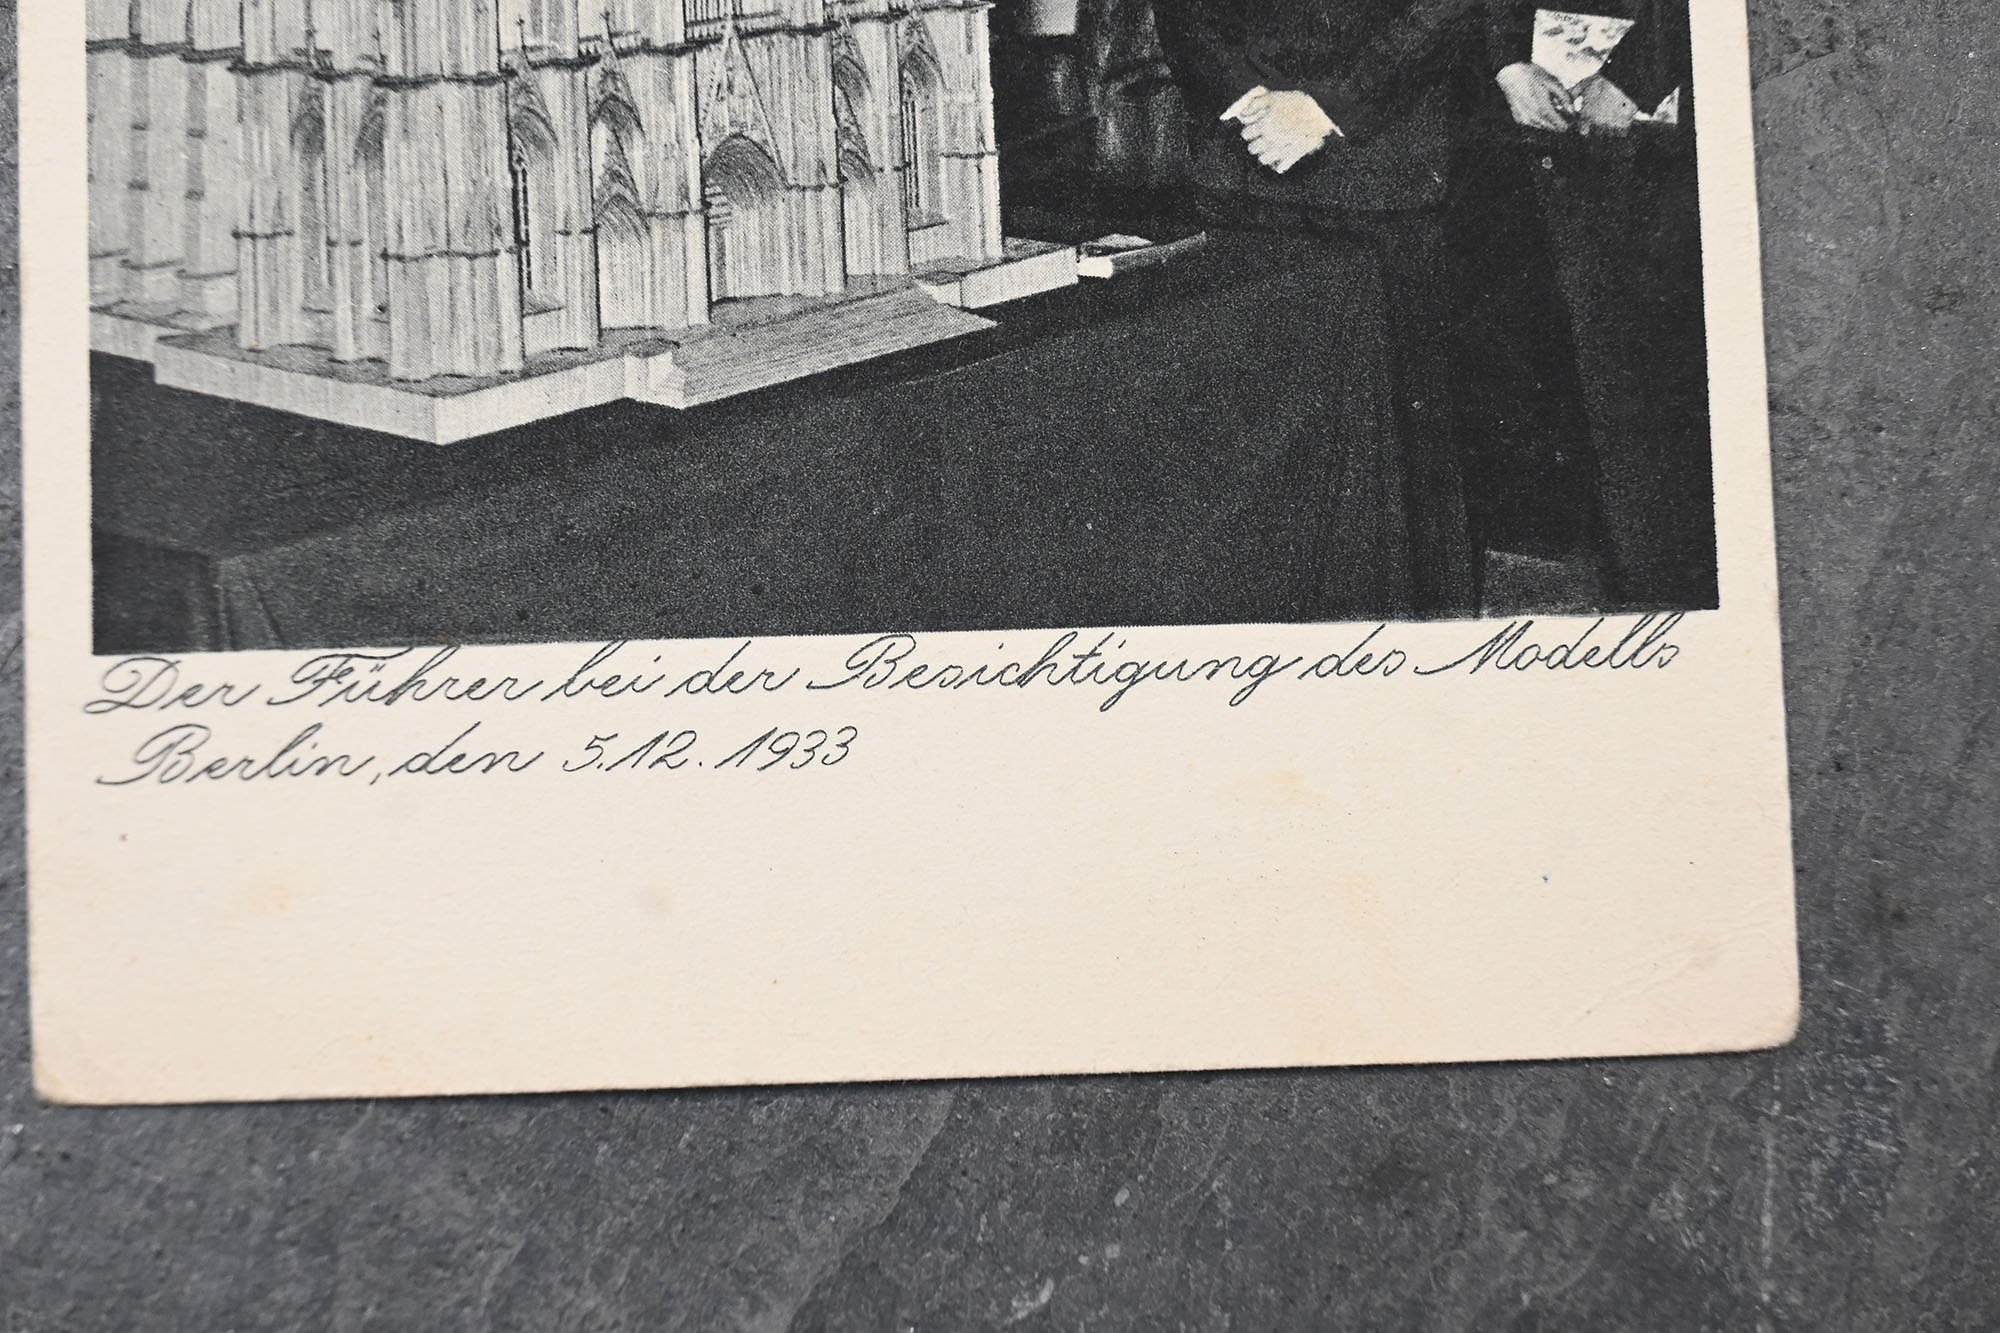 Der Führer bei der Besichtigung des Modells
Berlin, den 5.12.1933